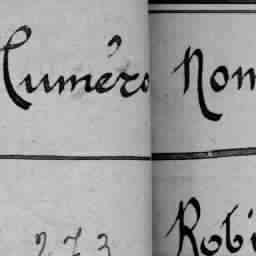 Numéro Nom
273 Robi